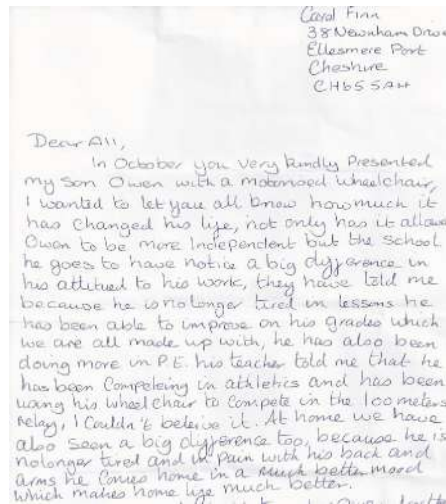 Carol Finn
38 Newnham Drive
Ellesmere Port
Cheshire
CH65 5AH
Dear All,
In October you very kindly Presented
my son Owen with a motorised wheelchair,
I wanted to let you all know how much it
has changed his life, not only has it allowe
Owen to be more Independent but the school
he goes to have notice a big difference in
his attitued to his work, they have told me
because he is no longer tired in lessons he
has been able to improve on his grades which
we are all made up with, he has also been
doing more in P.E. his teacher told me that he
has been Competeing in athletics and has been
using his wheelchair to Compete in the 100 meters
relay, I Couldn't beleive it. At home we have
also seen a big difference too, because he is
nolonger tired and in pain with his back and
arms he comes home in a much better mood
which makes home life much better.